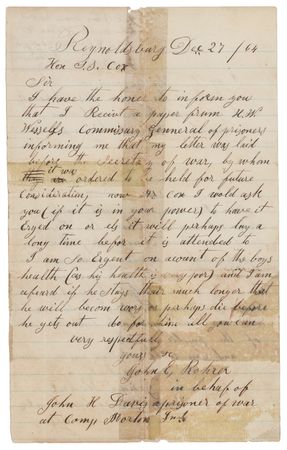 Reynoldsburg Dec 27 / 64
Hon S.S. Cox
Sir
I have the honor to inform you
that I Recievt a paper frum H.W.
Wessels Commissary Genneral of prisoners
informing me that my letter was laid
before the Secretary of war, by whom
it was ordered to be held for future
Consideration, now Mr Cox I would ask
you (if it is in your power) to have it
Erged on or els it will perhaps lay a
long time befor it is attended to
I am So Ergent on acount of the boys
health (as his health is very poor) and I am
afeard if he Stays thair much longer that
he will becom wors or perhaps die before
he gets out do for mine all you can
very respectfully
yours &c
John G Rohrer
in behap of
John H Davis a prisoner of war
at Camp Morton Ind